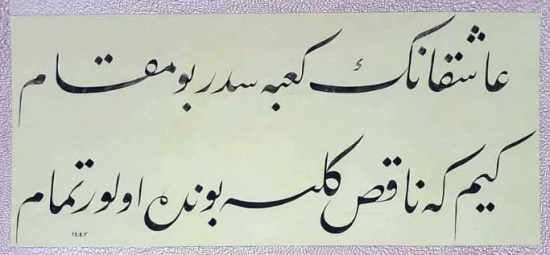 عاشقانك كعبه سدر بو مقام
كيم كه ناقص كلسه بونده اولور تمام
١٤٤٣